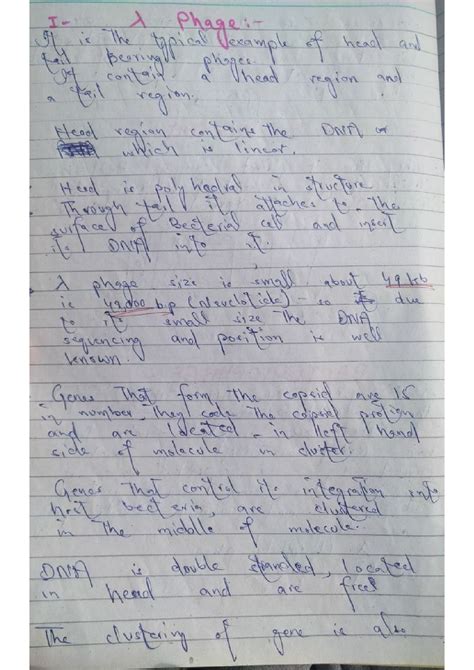 I- λ Phage:-
It is The typical example of head and
tail Bearing phages.
It contain a head region and
a tail region.
Head region contains the DNA or
which is linear.
Head is polyhedral in structure
Through tail it attaches to The
surface of Bacterial cell and insert
its DNA into it.
λ phage size is small about 49 kb
is 49000 b.p (Neuclotide) - so due
to its small size The DNA
sequencing and position is well
known.
Genes That form The capsid are 15
in number. They code The capsid protien
and are located in left hand
side of molecule in cluster.
Genes That control its integration into
host bacteria, are clustered
in The middle of molecule.
DNA is double stranded, located
in head and are free
The clustering of gene is also